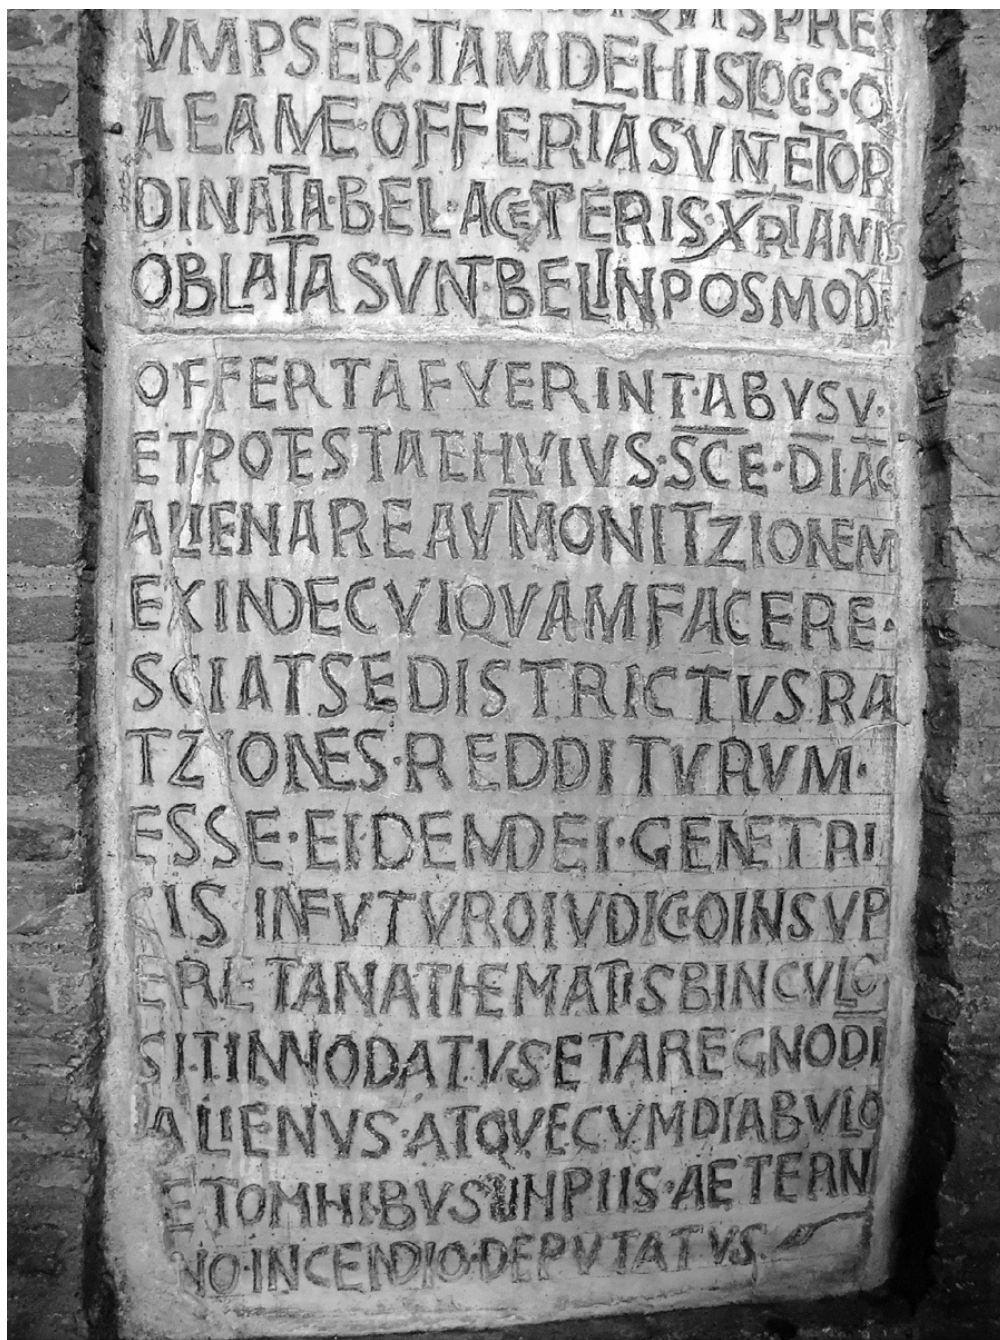 QVISPRES
VMPSER·TAMDEHISLOCIS·Q
AEAME·OFFERTASVNTETOR
DINATA·BEL·ACETERIS·XPIANIS
OBLATASVNT·BELINPOSMOD
OFFERTAFVERINT·ABVSV·
ETPOTESTATEHVIVS·SCE·DIAC
ALIENAREAVTMONITZIONEM
EXINDECVIQVAMFACERE·
SCIATSEDISTRICTVSRA
TZIONES·REDDITVRVM·
ESSE·EIDEMDEI·GENETRI
CIS INFVTVROIVDICIOINSVP
ERETANATHEMATISBINCVLO
SITINNODATVSETAREGNODI
ALIENVS·ATQVECVMDIABVLO
ETOMNIBVSINPIIS·AETERN
NO·INCENDIO·DEPVTATVS